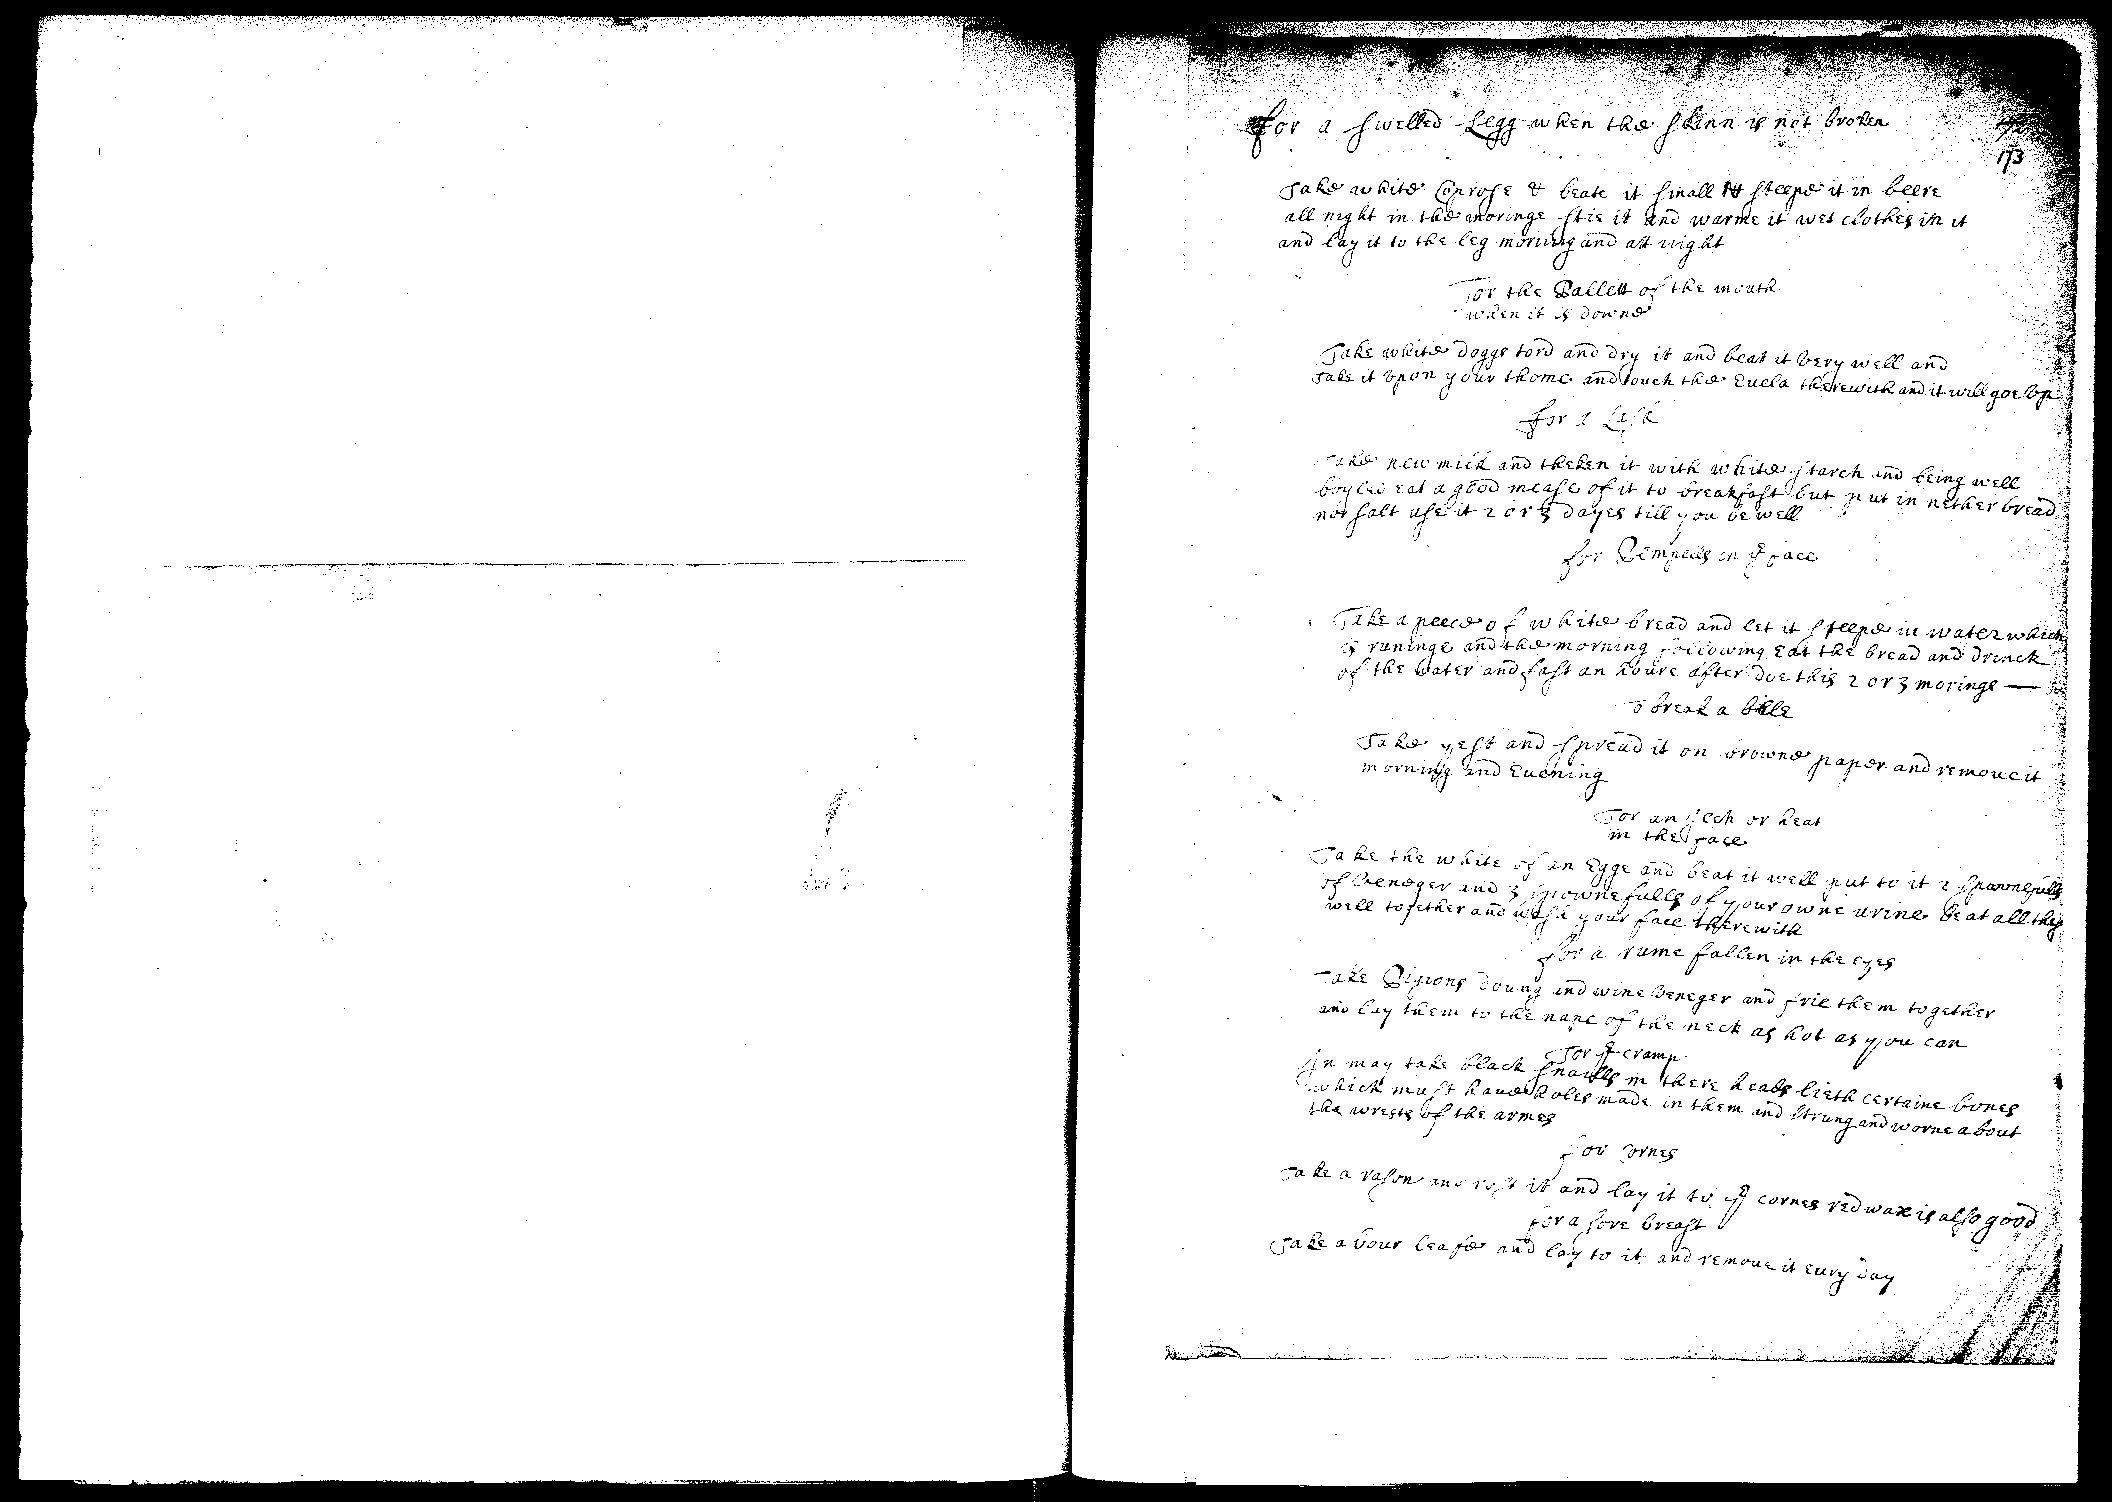 for a swelled Legg when the skinn is not broken
173
Take white Coprose & beate it small & steepe it in beere
all night in the moringe stie it and warme it wet clothes in it
and lay it to the leg morning and att night
For the Pallett of the mouth
when it is downe
Take white doggs tord and dry it and beat it very well and
take it vpon your thome and touch the Euela therewith and it will goe vp
for a Lask
Take new milk and theken it with white starch and being well
boyled eat a good mease of it to breakfast but put in nether bread
nor salt use it 2 or 3 dayes till you be well
for Pempells in ye face
Take a peece of white bread and let it steepe in water which
is runinge and the morning following eat the bread and drinck
of the water and fast an houre after doe this 2 or 3 moringe
To break a bile
Take yest and spread it on browne paper and remoue it
morning and Euening
For an Itch or heat
in the face
Take the white of an Egge and beat it well put to it 2 spownefulls
of veneger and 3 spownefulls of your owne urine beat all thes
well together and wash your face therewith
for a rume fallen in the eyes
Take Pigions doung and wine veneger and frie them together
and lay them to the nape of the neck as hot as you can
For ye cramp
In may take black snailes in there heads lieth certaine bones
which must haue holes made in them and strung and worne about
the wrests of the armes
for cornes
Take a rason and rost it and lay it to ye cornes red wax is also good
for a sore breast
Take a bour leafe and lay to it and remoue it eury day